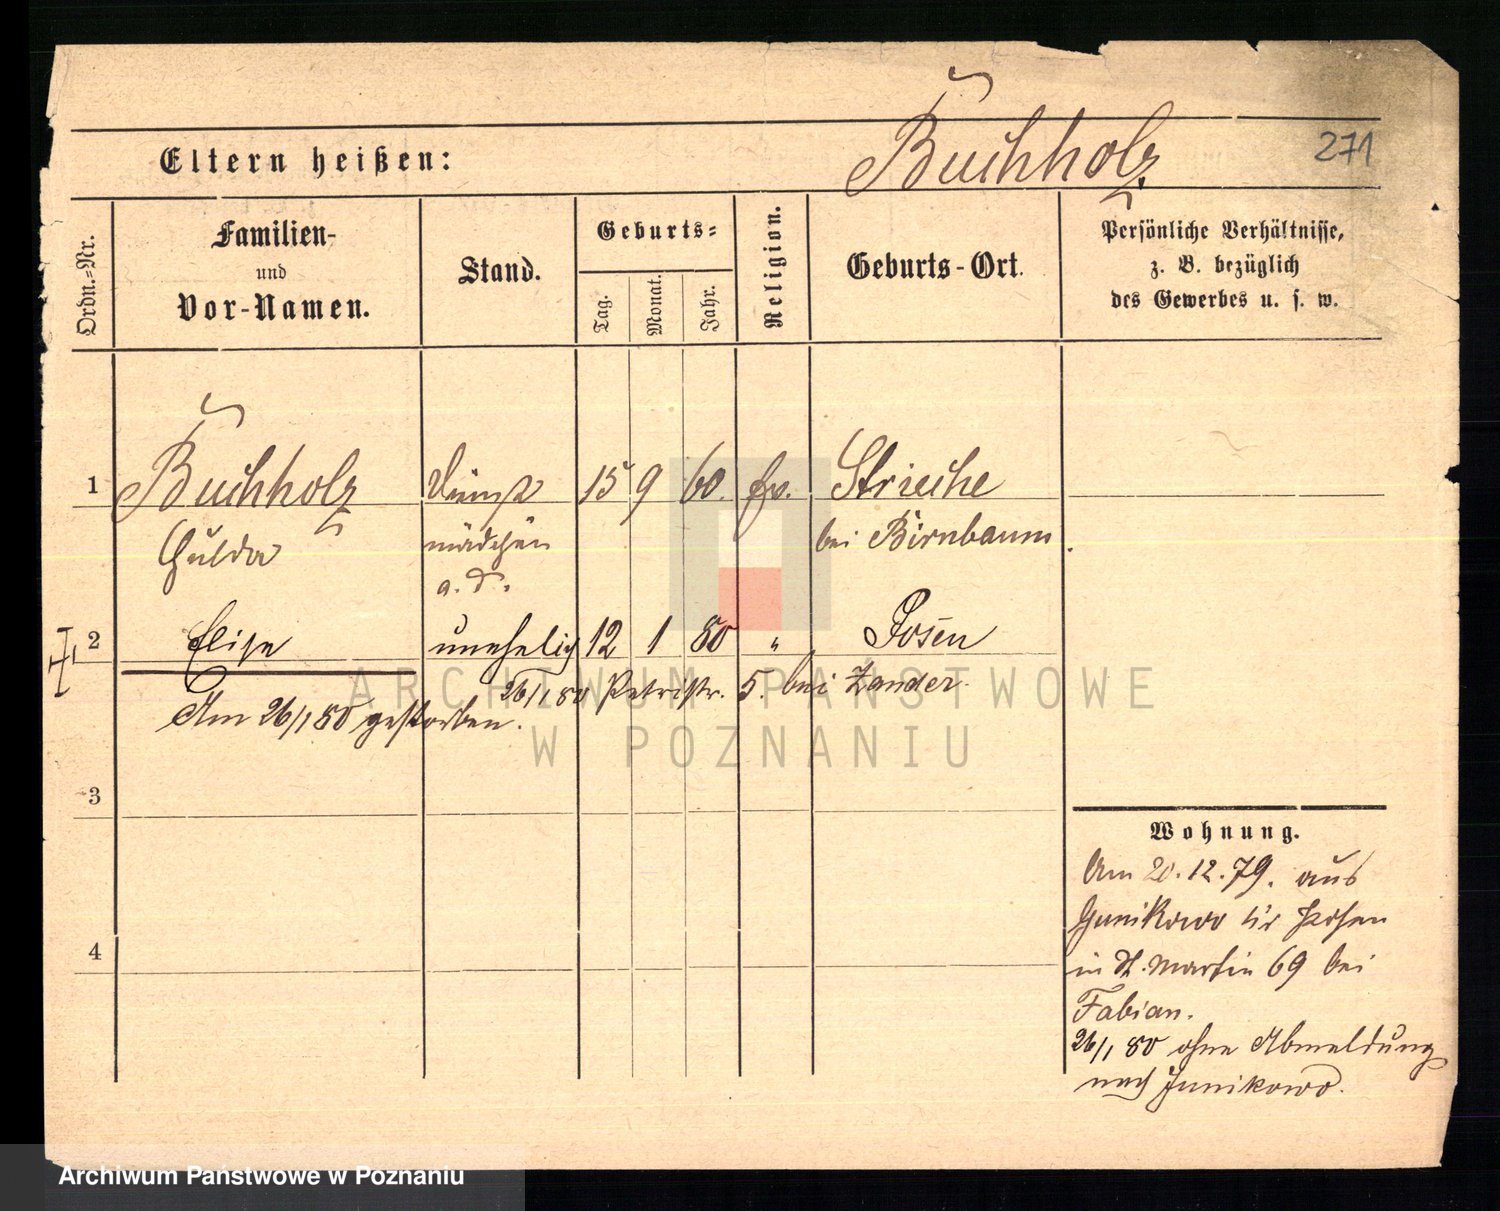 Buchholz
271
Eltern heißen:
Ordn.-Nr.
Familien-
und
Vor-Namen.
Stand.
Geburts-
Tag.
Monat.
Jahr.
Religion.
Geburts-Ort.
Persönliche Verhältnisse,
z. B. bezüglich
des Gewerbes u. s. w.
1 Buchholz Dienst 15 9 60. Ev. Strieche
Hulda mädchen bei Birnbaum.
a. D.
2 Elise unehelich 12 1 80 " Posen
26/1 80 Petristr. 5. bei Zander.
Am 26/1 80 gestorben.
3
4
Wohnung.
Am 20.12.79. aus
Junikowo hir Posen
in St. Martin 69 bei
Fabian.
26/1 80 ohne Abmeldung
nach Junikowo.
ARCHIWUM PAŃSTWOWE
W POZNANIU
Archiwum Państwowe w Poznaniu